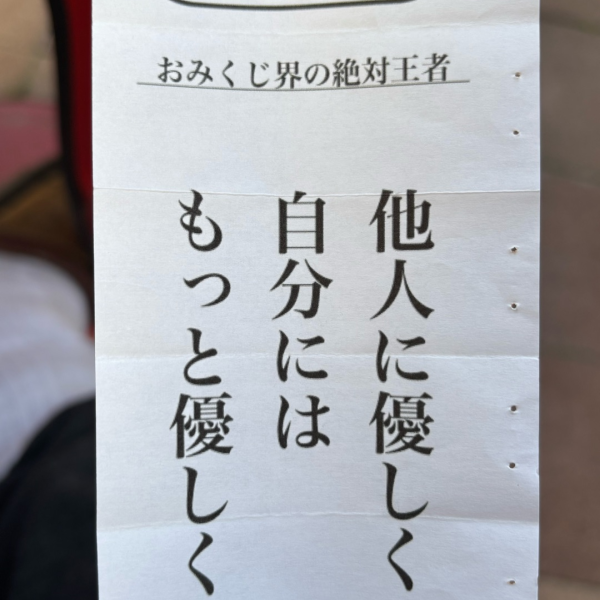 おみくじ界の絶対王者
他人に優しく
自分には
もっと優しく